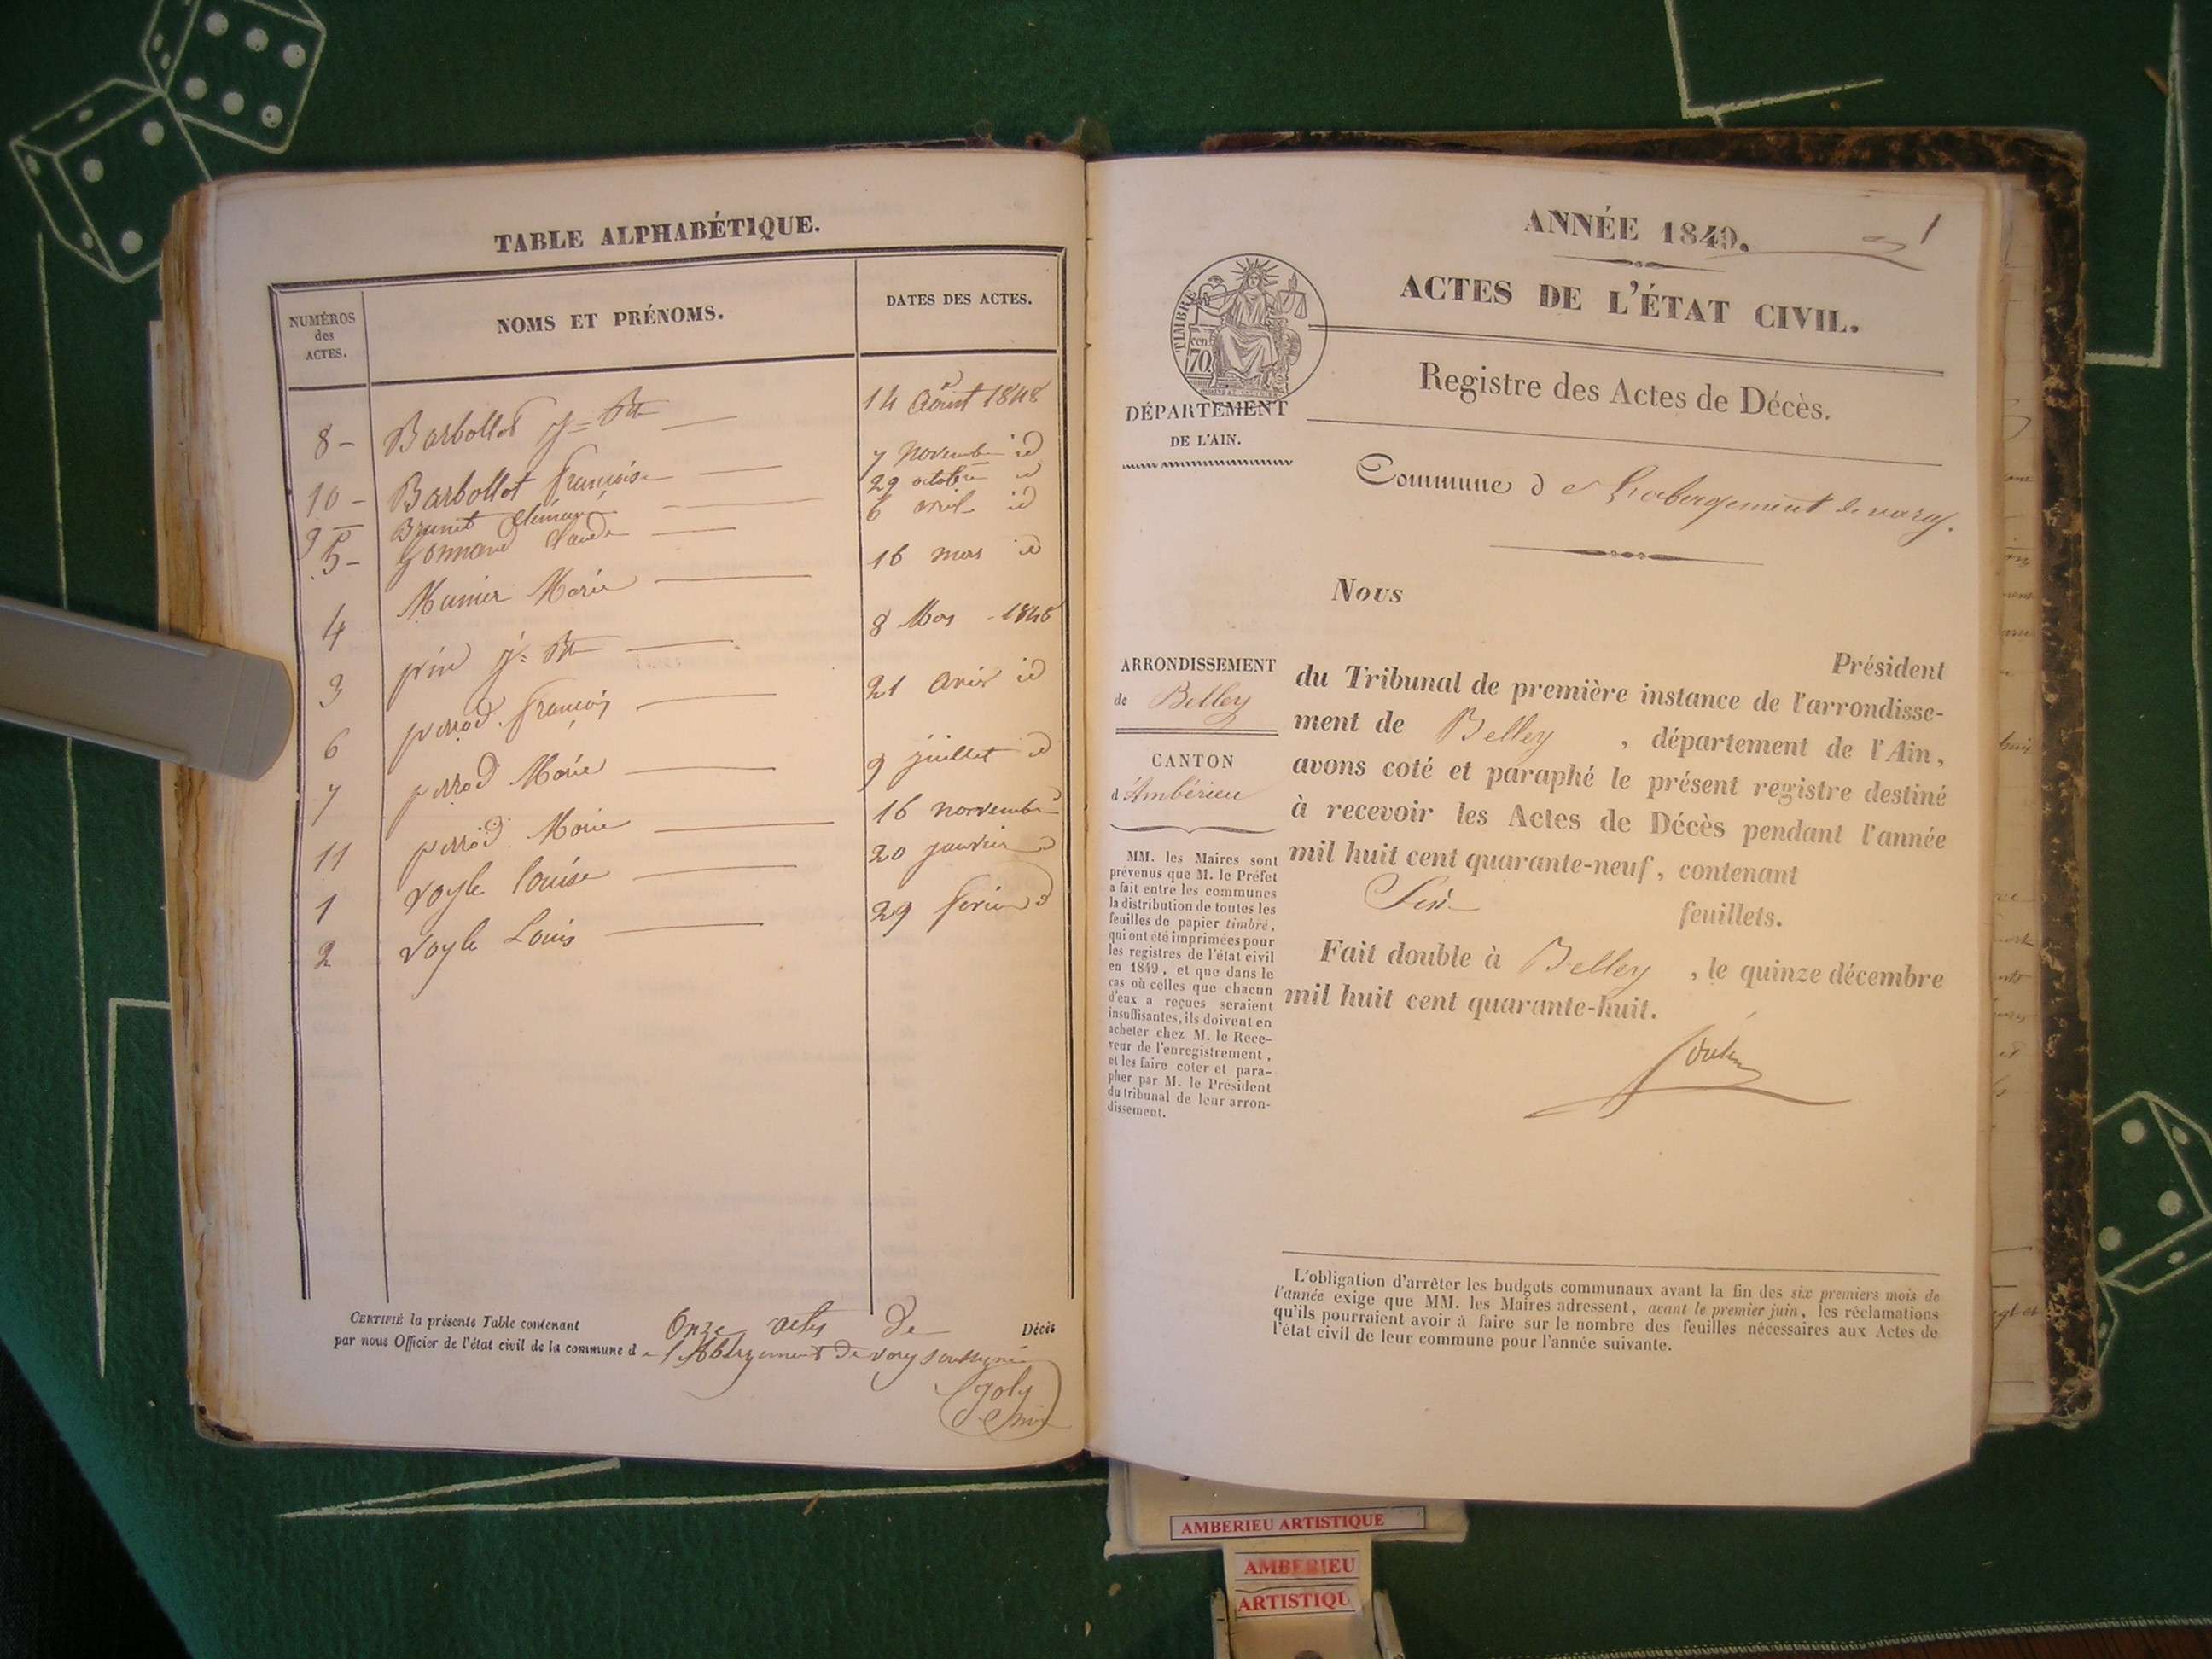 TABLE ALPHABÉTIQUE.
NUMÉROS des ACTES.
NOMS ET PRÉNOMS.
DATES DES ACTES.
8 - Barbollat j= Bte 14 Août 1848
10 - Barbollot françoise 7 Novembre id
9 - Brunet Clémence 29 octobre id
5 - Gonnand Claude 6 avril id
4 Munier Marie 16 mars id
3 prin j= Bte 8 Mars 1848
6 perrod françois 21 avril id
7 perrod Marie 9 juillet id
11 perrod Marie 16 novembre
1 voyle Louise 20 janvier id
2 voyle Louis 29 fevrier id
CERTIFIÉ la présente Table contenant Onze actes de Décès
par nous Officier de l'état civil de la commune de l'Abergement de varey soussigné
Joly
ANNÉE 1849.
1
ACTES DE L'ÉTAT CIVIL.
TIMBRE
cen
70
Registre des Actes de Décès.
DÉPARTEMENT
DE L'AIN.
Commune de L'abergement de varey.
Nous
Président
ARRONDISSEMENT
de Belley
CANTON
d'Ambérieu
du Tribunal de première instance de l'arrondisse-
ment de Belley, département de l'Ain,
avons coté et paraphé le présent registre destiné
à recevoir les Actes de Décès pendant l'année
mil huit cent quarante-neuf, contenant
Six feuillets.
Fait double à Belley, le quinze décembre
mil huit cent quarante-huit.
MM. les Maires sont
prévenus que M. le Préfet
a fait entre les communes
la distribution de toutes les
feuilles de papier timbré,
qui ont été imprimées pour
les registres de l'état civil
en 1849, et que dans le
cas où celles que chacun
d'eux a reçues seraient
insuffisantes, ils doivent en
acheter chez M. le Rece-
veur de l'enregistrement,
et les faire coter et para-
pher par M. le Président
du tribunal de leur arron-
dissement.
L'obligation d'arrêter les budgets communaux avant la fin des six premiers mois de
l'année exige que MM. les Maires adressent, avant le premier juin, les réclamations
qu'ils pourraient avoir à faire sur le nombre des feuilles nécessaires aux Actes de
l'état civil de leur commune pour l'année suivante.
AMBERIEU ARTISTIQUE
AMBERIEU
ARTISTIQU